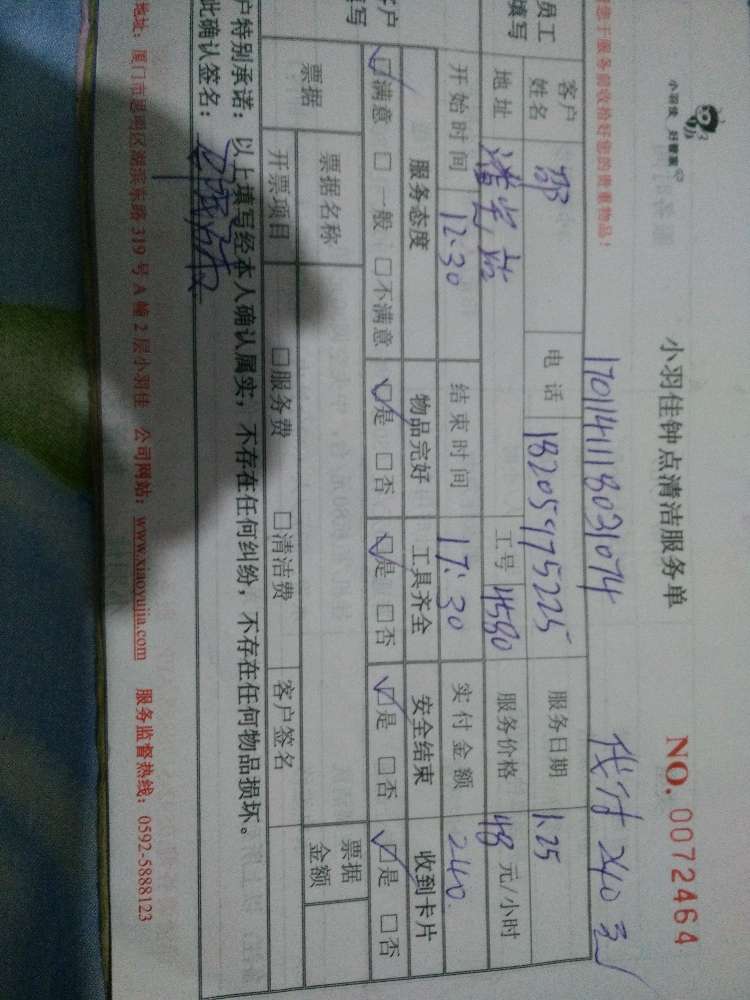 小羽佳 好管家
小羽佳钟点清洁服务单
NO. 0072464
1701141118031074
代付 240元
您于服务前收拾好您的贵重物品!
员工
填写
客户
姓名
邵
电话
18205975225
服务日期
1.25
地址
工号
4580
服务价格
48 元/小时
开始时间
12:30
结束时间
17:30
实付金额
240.
客户
填写
服务态度
物品完好
工具齐全
安全结束
收到卡片
☑满意 □一般 □不满意
☑是 □否
☑是 □否
☑是 □否
☑是 □否
票据
票据名称
票据
金额
开票项目
□服务费 □清洁费
客户签名
户特别承诺:以上填写经本人确认属实,不存在任何纠纷,不存在任何物品损坏。
此确认签名:
地址:厦门市思明区湖滨东路 319 号 A 幢 2 层小羽佳 公司网站:www.xiaoyujia.com 服务监督热线:0592-5888123